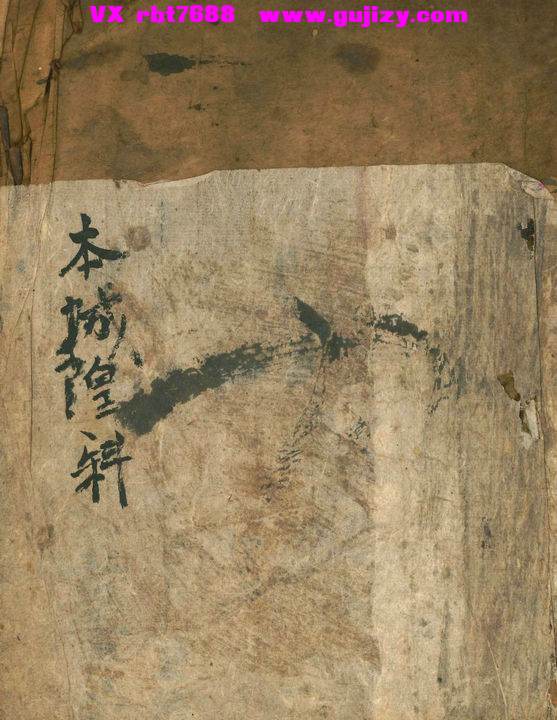 VX rbt7688 www.gujizy.com
本城隍科